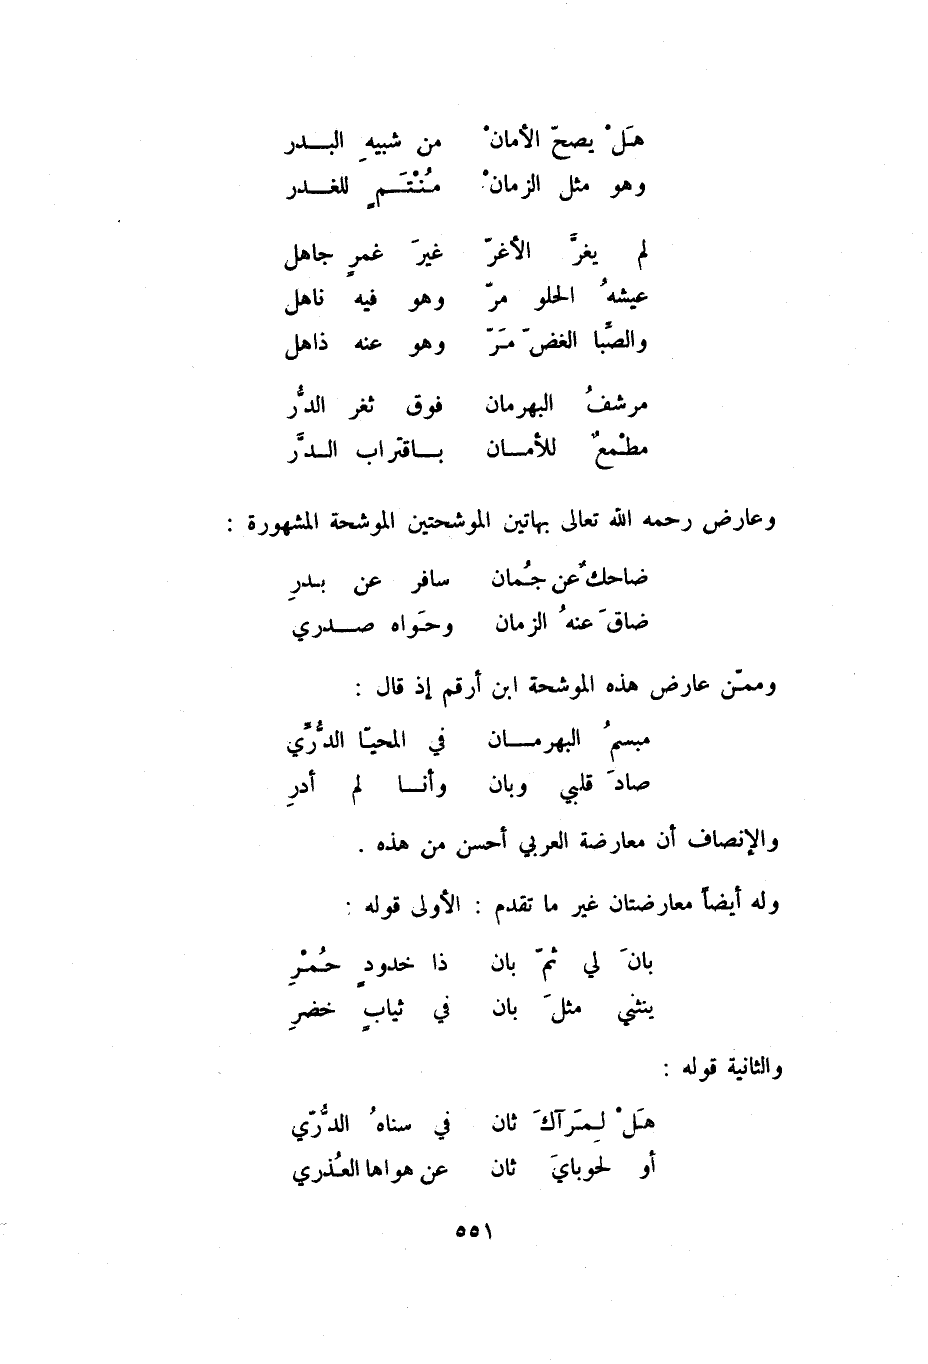 هَلْ يصحّ الأمانْ من شبيهِ البـــدر
وهو مثل الزمانْ مُنْتَـمٍ للغـــدر
لم يغرَّ الأغرّ غيرَ غمرٍ جاهل
عيشهُ الحلو مرّ وهو فيه ناهل
والصِّبا الغضّ مَرّ وهو عنه ذاهل
مرشفُ البهرمان فوق ثغر الدُّر
مطْمعٌ للأمــان بــاقتراب الــدَّر
وعارض رحمه الله تعالى بهاتين الموشحتين الموشحة المشهورة :
ضاحكٌ عن جُمان سافر عن بــدرِ
ضاقَ عنهُ الزمان وحَواه صـــدري
وممّن عارض هذه الموشحة ابن أرقم إذ قال :
مبسمُ البهرمـــان في المحيّا الدُّرِّي
صادَ قلبي وبان وأنــا لم أدرِ
والإنصاف أن معارضة العربي أحسن من هذه .
وله أيضاً معارضتان غير ما تقدم : الأولى قوله :
بانَ لي ثمّ بان ذا خدودٍ حُمْرِ
ينثني مثلَ بان في ثيابٍ خضرِ
والثانية قوله :
هَلْ لِمَرآكَ ثان في سناهُ الدُّرّي
أو لحوبايَ ثان عن هواها العُذري
٥٥١